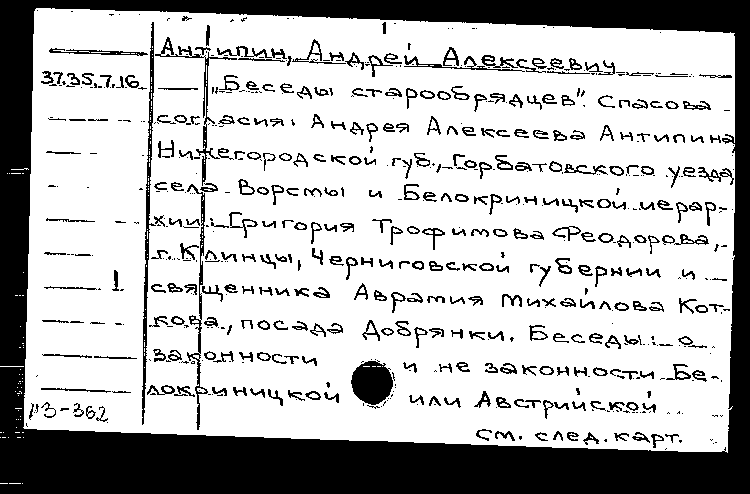 Антипин, Андрей Алексеевич
37.35.7.16 — „Беседы старообрядцев“. Спасова
согласия: Андрея Алексеева Антипина,
Нижегородской губ., Горбатовского уезда,
села Ворсмы и Белокриницкой иерар-
хии: Григория Трофимова Феодорова,
г. Клинцы, Черниговской губернии и
1 священника Аврамия Михайлова Кот-
кова, посада Добрянки. Беседы: о
законности и не законности Бе-
локриницкой или Австрийской
см. след. карт.